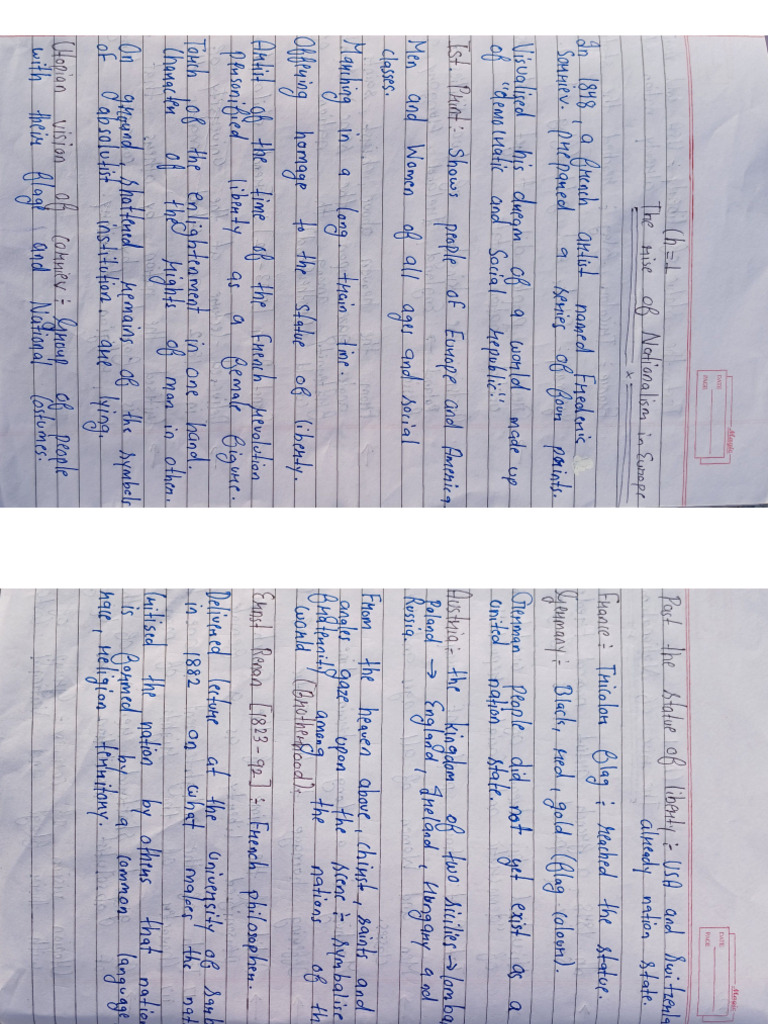 Magic
DATE
PAGE
Ch=1
The rise of Nationalism in Europe
In 1848, a french artist named Frederic
Sorriev. prepared a series of four paints.
Visualised his dream of a world made up
of "democratic and social republic"
Ist. Print: Shows people of Europe and America
Men and Women of all ages and social
classes.
Marching in a long. train line.
Offering homage to the statue of liberty.
Artist of the time of the French revolution
personified liberty as a female figure.
Torch of the enlightenment in one hand.
Character of the rights of man in other.
On ground, shattered remains of the symbols
of absolutist institution. are lying.
Utopian vision of corriev: Group of people
with their flage and National Costumes.
Magic
DATE
PAGE
Past the statue of liberty: USA and Switzerla
already nation state.
France: Tricolor flag: reached the statue.
Germany: Black, red, gold (flag colour).
German people did not yet exist as a
united nation state.
Austria: the kingdom of two sicilies → lomba
Poland → England, Ireland, Hungary and
Russia.
From the heaven above, christ, saints and
angles gaze upon the scene: symbolise
fraternity among the nations of th
world (Brotherhood):
Ernst Renan [1823-92]: French philosopher.
Delivered lecture at the university of
in 1882 on what makes the nat
the nation by others that nation
is formed by a common language
race, religion territory.